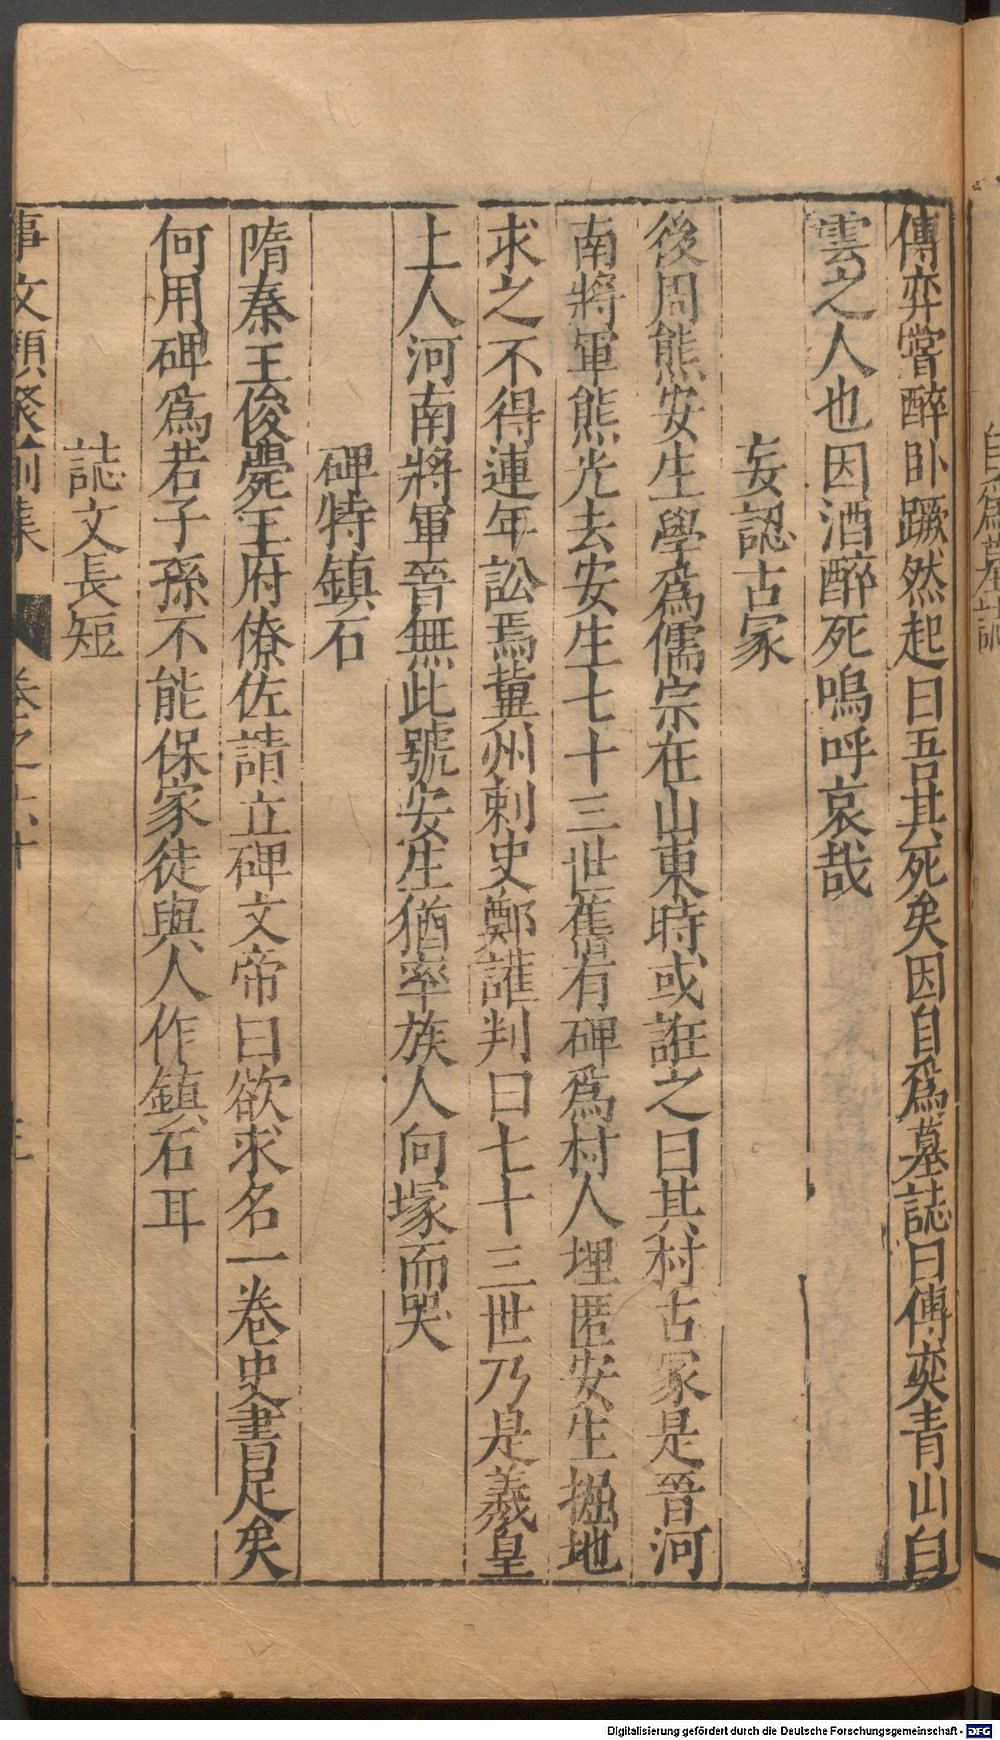 傳弈嘗醉卧蹶然起曰吾其死矣因自爲墓誌曰傳奕青山白
雲之人也因酒醉死嗚呼哀哉
妄認古冢
後周熊安生學爲儒宗在山東時或誑之曰其村古冢是晉河
南將軍熊光去安生七十三世舊有碑爲村人埋匿安生掘地
求之不得連年訟焉冀州刺史鄭讙判曰七十三世乃是羲皇
上人河南將軍晉無此號安生猶率族人向塚而哭
碑特鎮石
隋秦王俊薨王府僚佐請立碑文帝曰欲求名一卷史書足矣
何用碑爲若子孫不能保家徒與人作鎮石耳
誌文長短
事文類聚前集 卷之六十
Digitalisierung gefördert durch die Deutsche Forschungsgemeinschaft - DFG